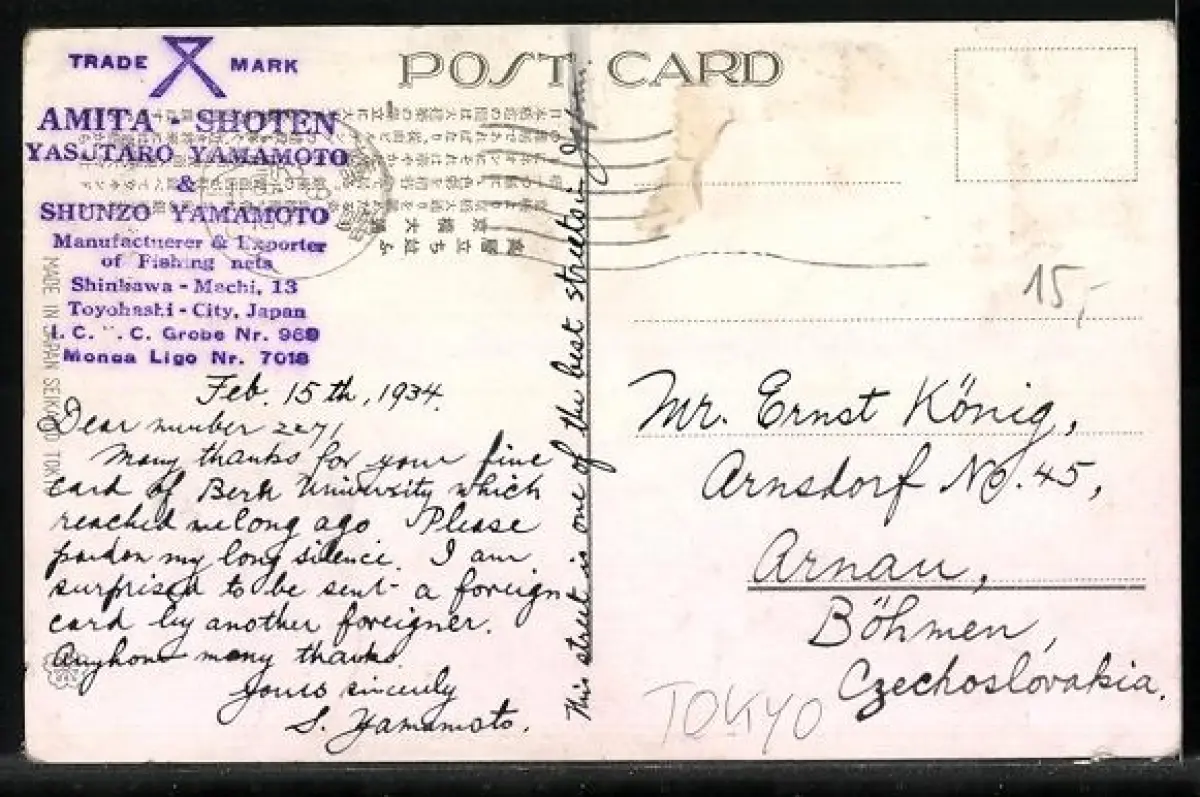 TRADE MARK
POST CARD
AMITA - SHOTEN
YASUTARO YAMAMOTO
&
SHUNZO YAMAMOTO
Manufactuerer & Exporter
of Fishing nets
Shinkawa - Machi, 13
Toyohashi - City, Japan
I. C. C. Grobe Nr. 969
Monea Ligo Nr. 7018
MADE IN JAPAN SEIKAIDO TOKYO
Feb. 15th, 1934.
Dear number 2271
Many thanks for your fine
card of Berk University which
reached me long ago Please
pardon my long silence. I am
surprised to be sent a foreign
card by another foreigner.
Anyhow many thanks.
Yours sincerely
S. Yamamoto.
This street is one of the best streets in Japan.
15,-
Mr. Ernst König,
Arnsdorf No. 45,
Arnau,
Böhmen,
Czechoslovakia.
TOKYO